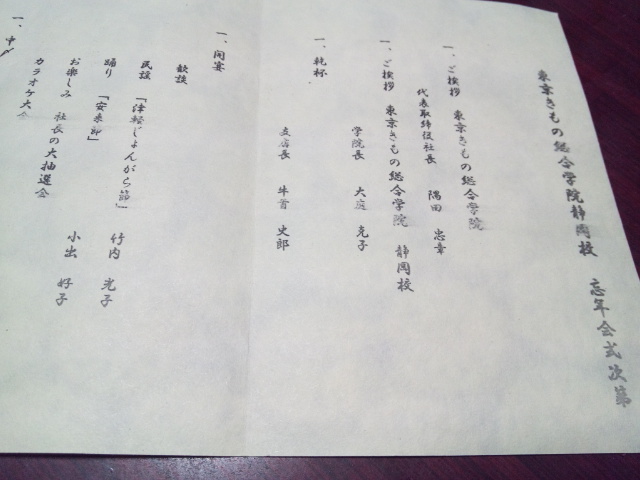 東京きもの総合学院静岡校　忘年会式次第
一、ご挨拶　東京きもの総合学院
代表取締役社長　隅田　忠幸
一、ご挨拶　東京きもの総合学院　静岡校
学院長　大庭　克子
一、乾杯
支店長　牛首　史郎
一、開宴
歓談
民謡　「津軽じょんがら節」　竹内　光子
踊り　「安来節」　小出　好子
お楽しみ　社長の大抽選会
カラオケ大会
一、中〆